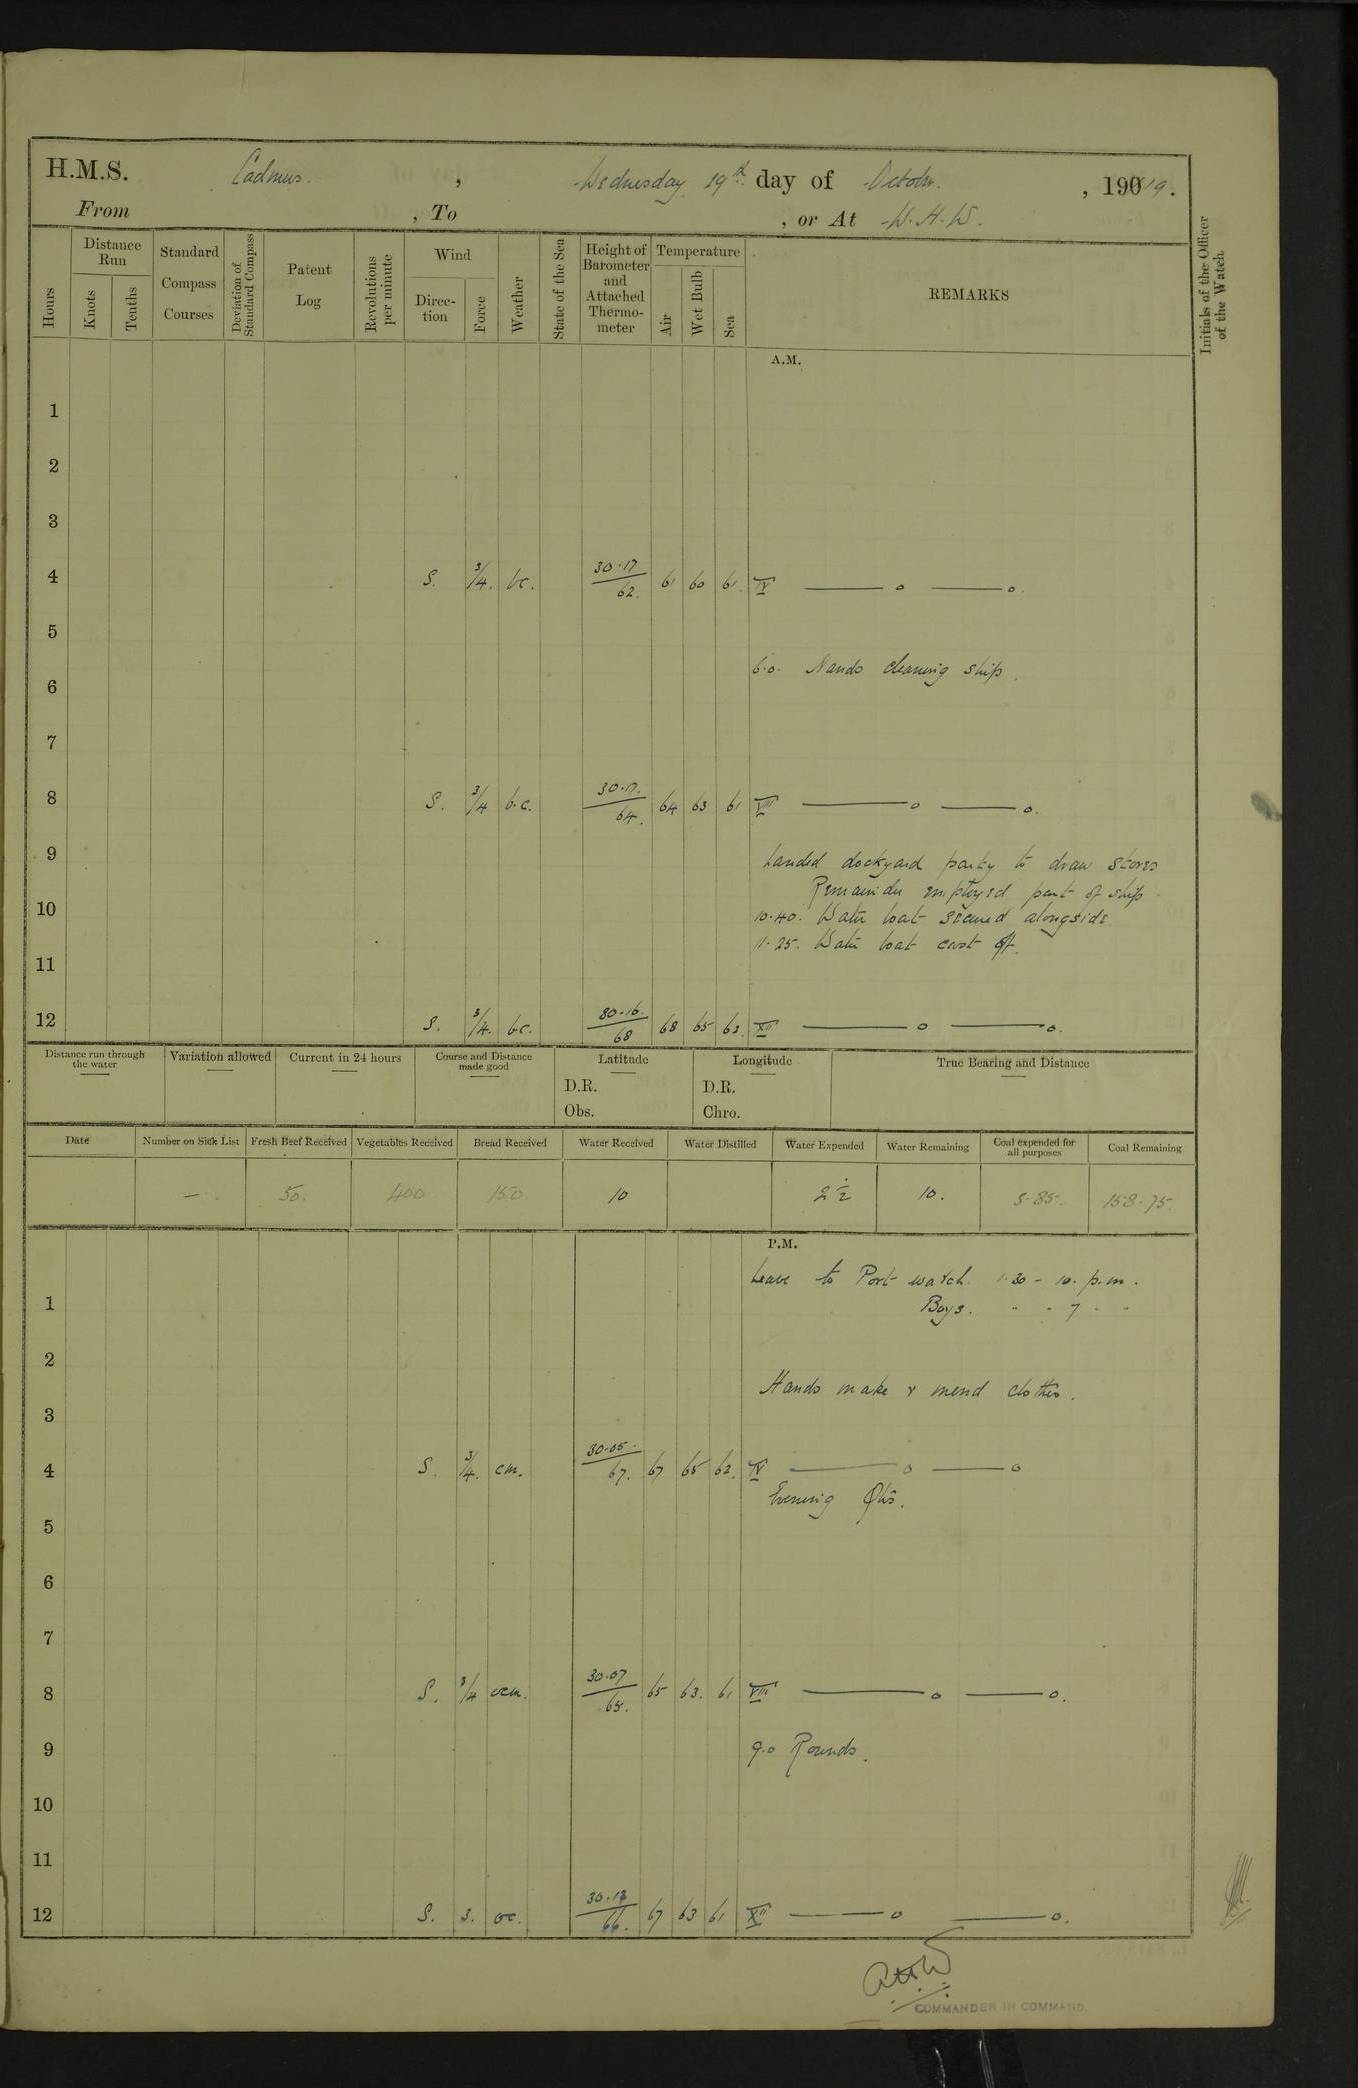 H.M.S. Cadmus. , Wednesday 19th day of Octobr. , 19019.
From , To , or At W.H.W.
Hours
Distance Run
Knots
Tenths
Standard Compass Courses
Deviation of Standard Compass
Patent Log
Revolutions per minute
Wind
Direction
Force
Weather
State of the Sea
Height of Barometer and Attached Thermometer
Temperature
Air
Wet Bulb
Sea
REMARKS
Initials of the Officer of the Watch.
A.M.
1
2
3
4 S. 3/4. bc. 30.17 62. 61 60 61. IV — o — o.
5
6.0. Hands cleaning ship.
6
7
8 S. 3/4 b.c. 30.17. 64. 64 63 61 VIII — o — o.
9 Landed dockyard party to draw stores
Remainder employed part of ship.
10 10.40. Water boat secured alongside.
11.25. Water boat cast off.
11
12 S. 3/4. bc. 30.16. 68 68 65 62. XII — o — o.
Distance run through the water
Variation allowed
Current in 24 hours
Course and Distance made good
Latitude
D.R.
Obs.
Longitude
D.R.
Chro.
True Bearing and Distance
Date Number on Sick List Fresh Beef Received Vegetables Received Bread Received Water Received Water Distilled Water Expended Water Remaining Coal expended for all purposes Coal Remaining
— . 50. 400 150. 10 2½ 10. 5.85. 158.75.
P.M.
Leave to Port watch. 1.30 - 10. p.m.
1 Boys. " " 7 " "
2
Hands make & mend clothes.
3
4 S. 3/4. cm. 30.05. 67. 67 65 62. IV — o — o
Evening Qrs.
5
6
7
8 S. 3/4 ocm. 30.07 65. 65 63. 61 VIII — o — o.
9 9.0 Rounds.
10
11
12 S. 3. oc. 30.13 66. 67 63 61 XII — o — o.
COMMANDER IN COMMAND.